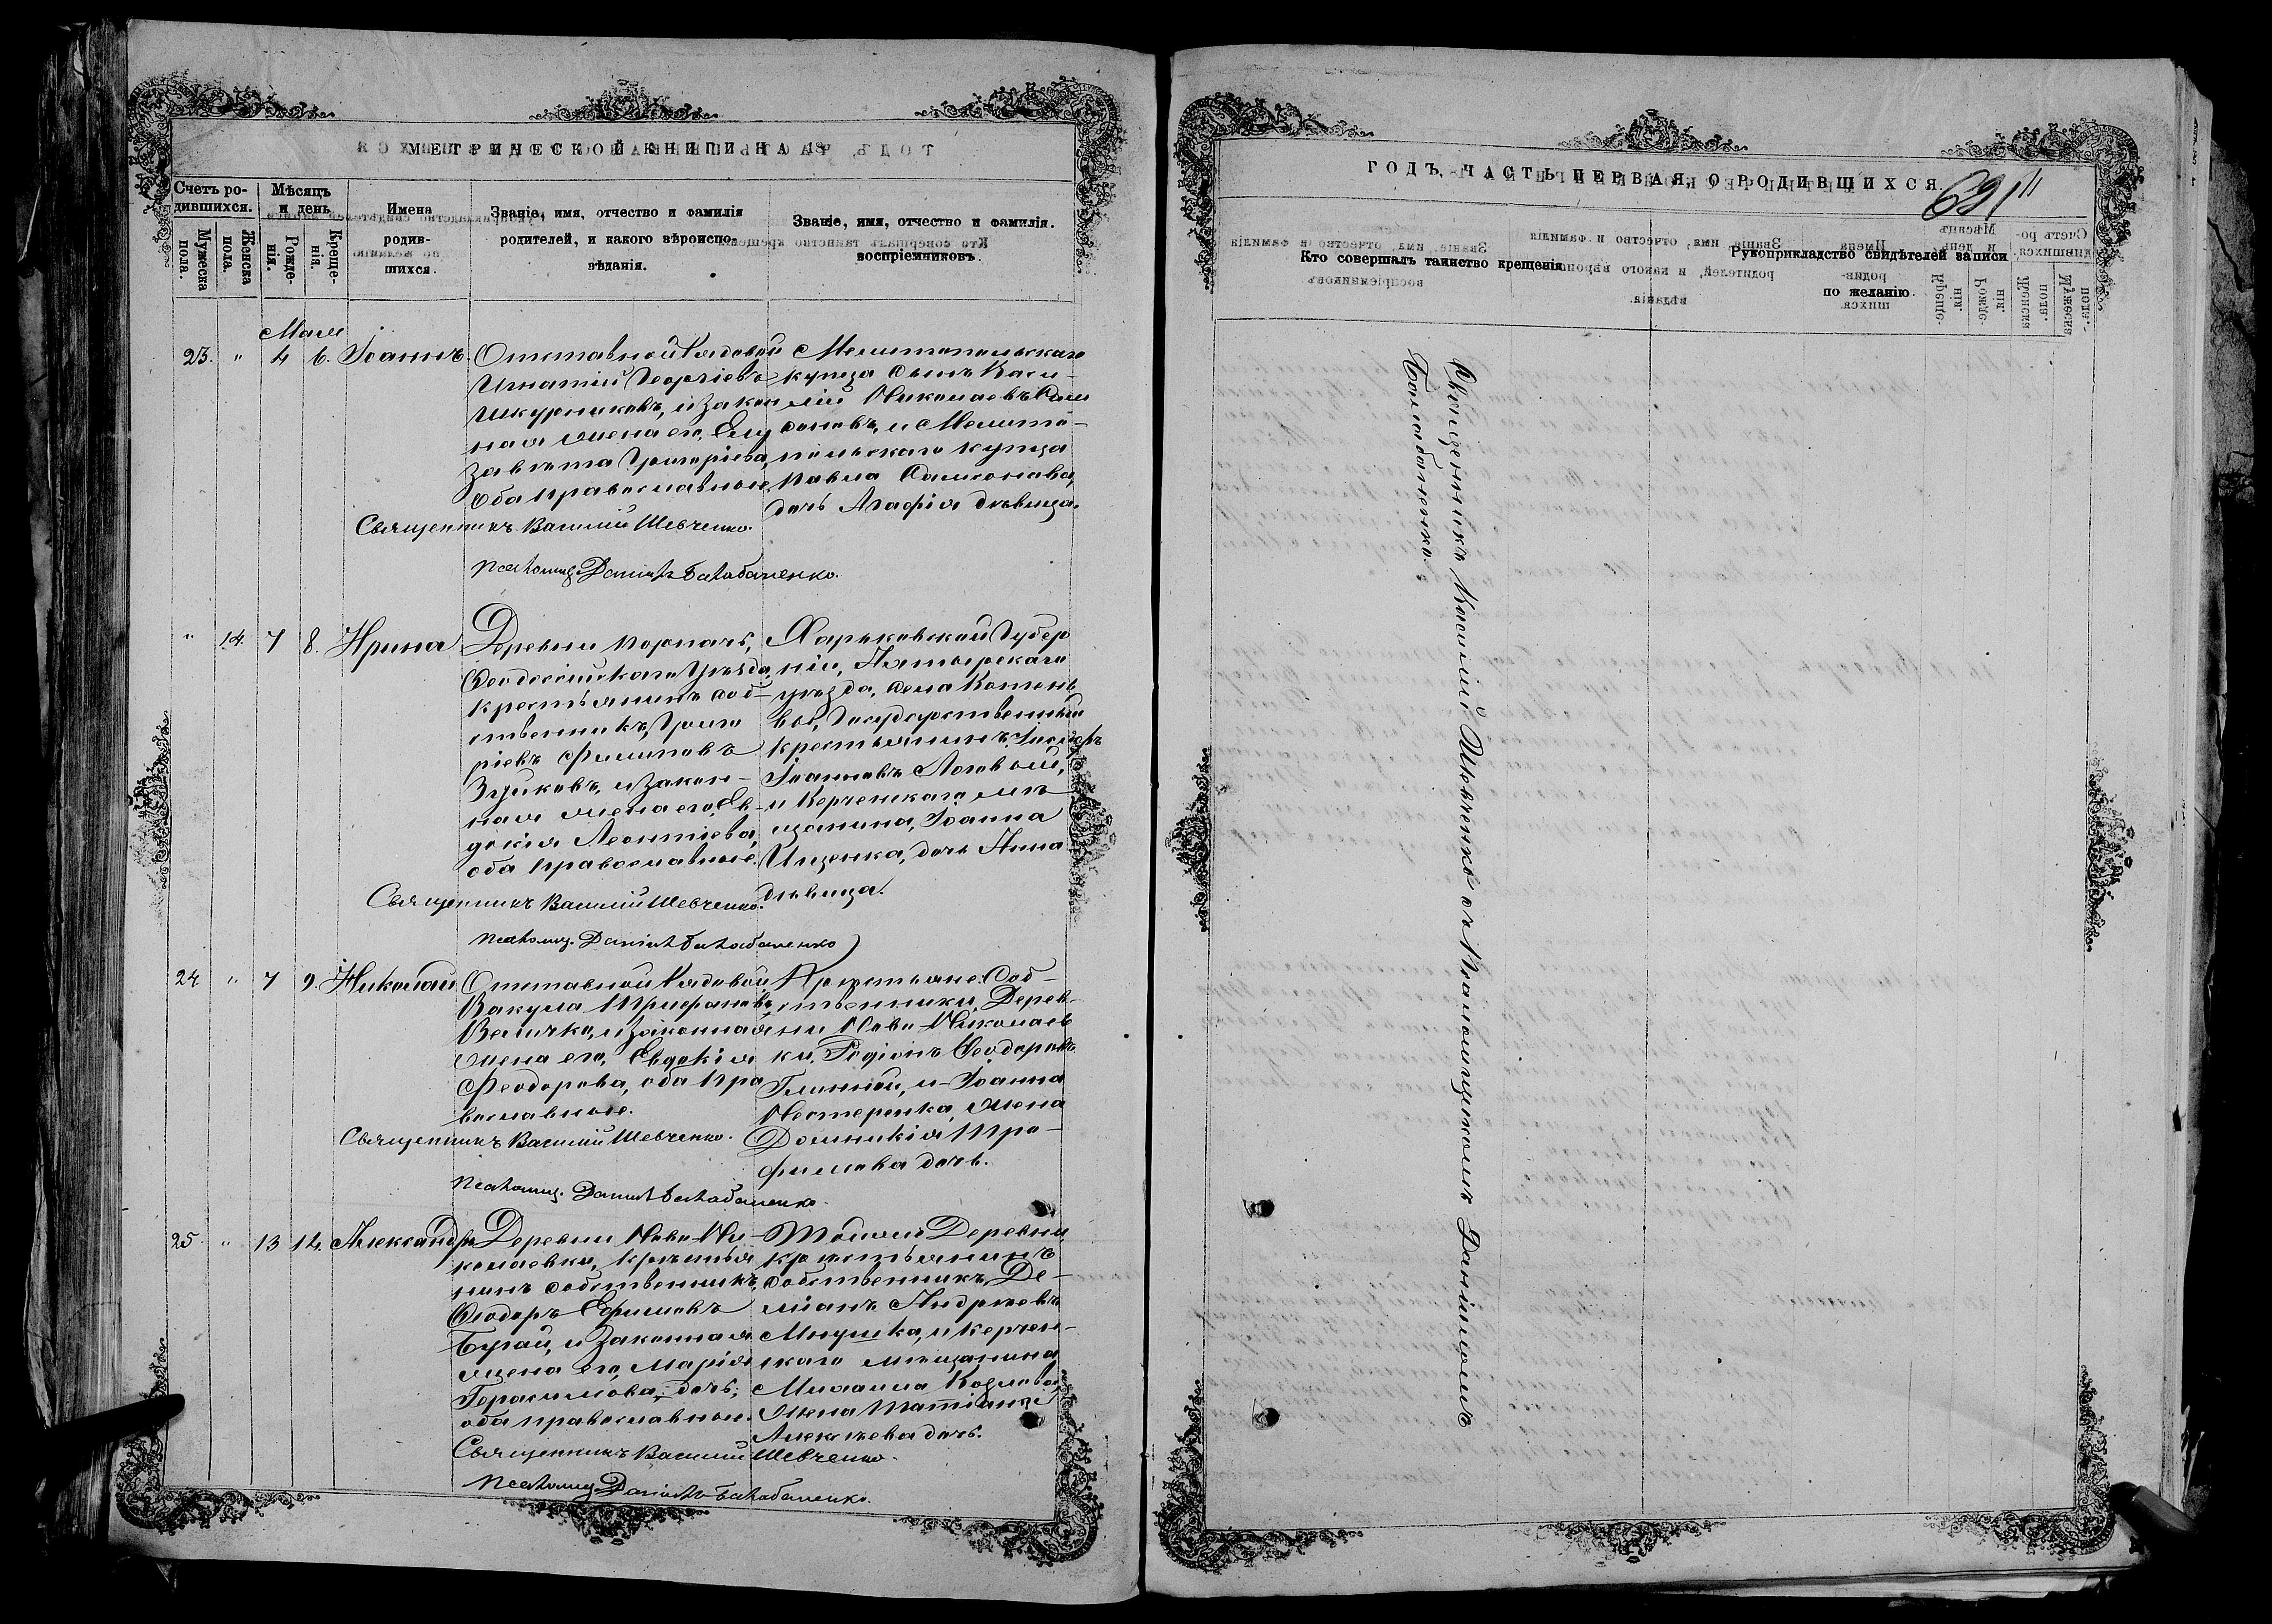 МЕТРИЧЕСКОЙ КНИГИ НА 18
Счетъ ро-
дившихся.
Мужеска
пола.
Женска
пола.
Мѣсяцъ
и день
Рожде-
нія.
Креще-
нія.
Имена
родив-
шихся.
Званіе, имя, отчество и фамилія
родителей, и какого вѣроиспо-
вѣданія.
Званіе, имя, отчество и фамилія.
воспріемниковъ.
Мая
23. " 4 6. Іоаннъ
Отставной Рядовой
Игнатій Георгіевъ
Шкурниковъ, и закон
ная жена его, Ели
завѣта Григоріева,
оба православные.
Мелитопольскаго
купца сынъ Васи-
лій Николаевъ Сам
соновъ, и Мелито-
польскаго купца
Павла Самсонова,
дочь Агафія дѣвица.
Священникъ Василій Шевченко.
Псаломщ. Даніилъ Балабаненко.
" 14. 7 8. Ирина
Деревни Порпачъ,
Ѳеодосійскаго Уѣзда,
крестьянинъ соб-
ственникъ, Григо
ріевъ Филиповъ
Зуйковъ, и закон-
ная жена его, Ев-
докія Леонтіева,
оба православные.
Харьковской Губер
ніи,
уѣзда, села
Государственный
крестьянинъ, Іосифъ
Іоанновъ Логовой,
и Керченскаго мѣ
щанина, Іоанна
Ищенка, дочь Анна
дѣвица.
Священникъ Василій Шевченко.
Псаломщ. Даніилъ Балабаненко
24 " 7 9. Николай
Отставной Рядовой
Вакула Трифановъ
Величко, и законная
жена его, Евдокія
Феодорова, оба пра
вославные.
Крестьяне Соб-
ственники, Дерев-
ни Ново-Николаев
ки, Родіонъ Ѳеодоровъ
Глинной, и Іоанна
Нестеренка, жена
Домникія Тро-
фимова дочь.
Священникъ Василій Шевченко.
Псаломщ. Даніилъ Балабаненко.
25 " 13 14. Александръ
Деревни Ново-Ни-
колаевки, крестья
нинъ собственникъ,
Ѳеодоръ Ефимовъ
Бугай, и законная
жена его, Марія
Герасимова, дочь;
оба православные.
Тойже Деревни
крестьянинъ
собственникъ, Де-
міанъ Андреевъ
Мнушка, и керчен-
скаго мѣщанина
Михаила Козлова,
жена Татіана
Алексѣева дочь.
Священникъ Василій Шевченко.
Псаломщ. Даніилъ Балабаненко.
ГОДЪ, ЧАСТЬ ПЕРВАЯ, О РОДИВШИХСЯ.
691
Кто совершалъ таинство крещенія
Рукоприкладство свидѣтелей записи
по желанію.
Священникъ Василій Шевченко съ Псаломщикомъ Даніиломъ
Балабаненко.